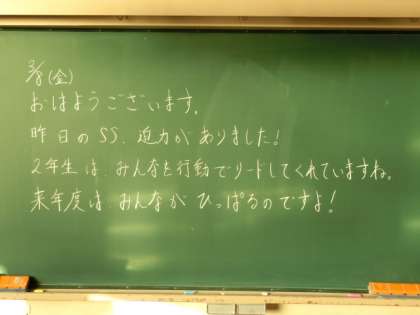 3/8(金)
おはようございます。
昨日のSS、迫力がありました!
2年生は、みんなを行動でリードしてくれていますね。
来年度は みんなが ひっぱるのですよ!